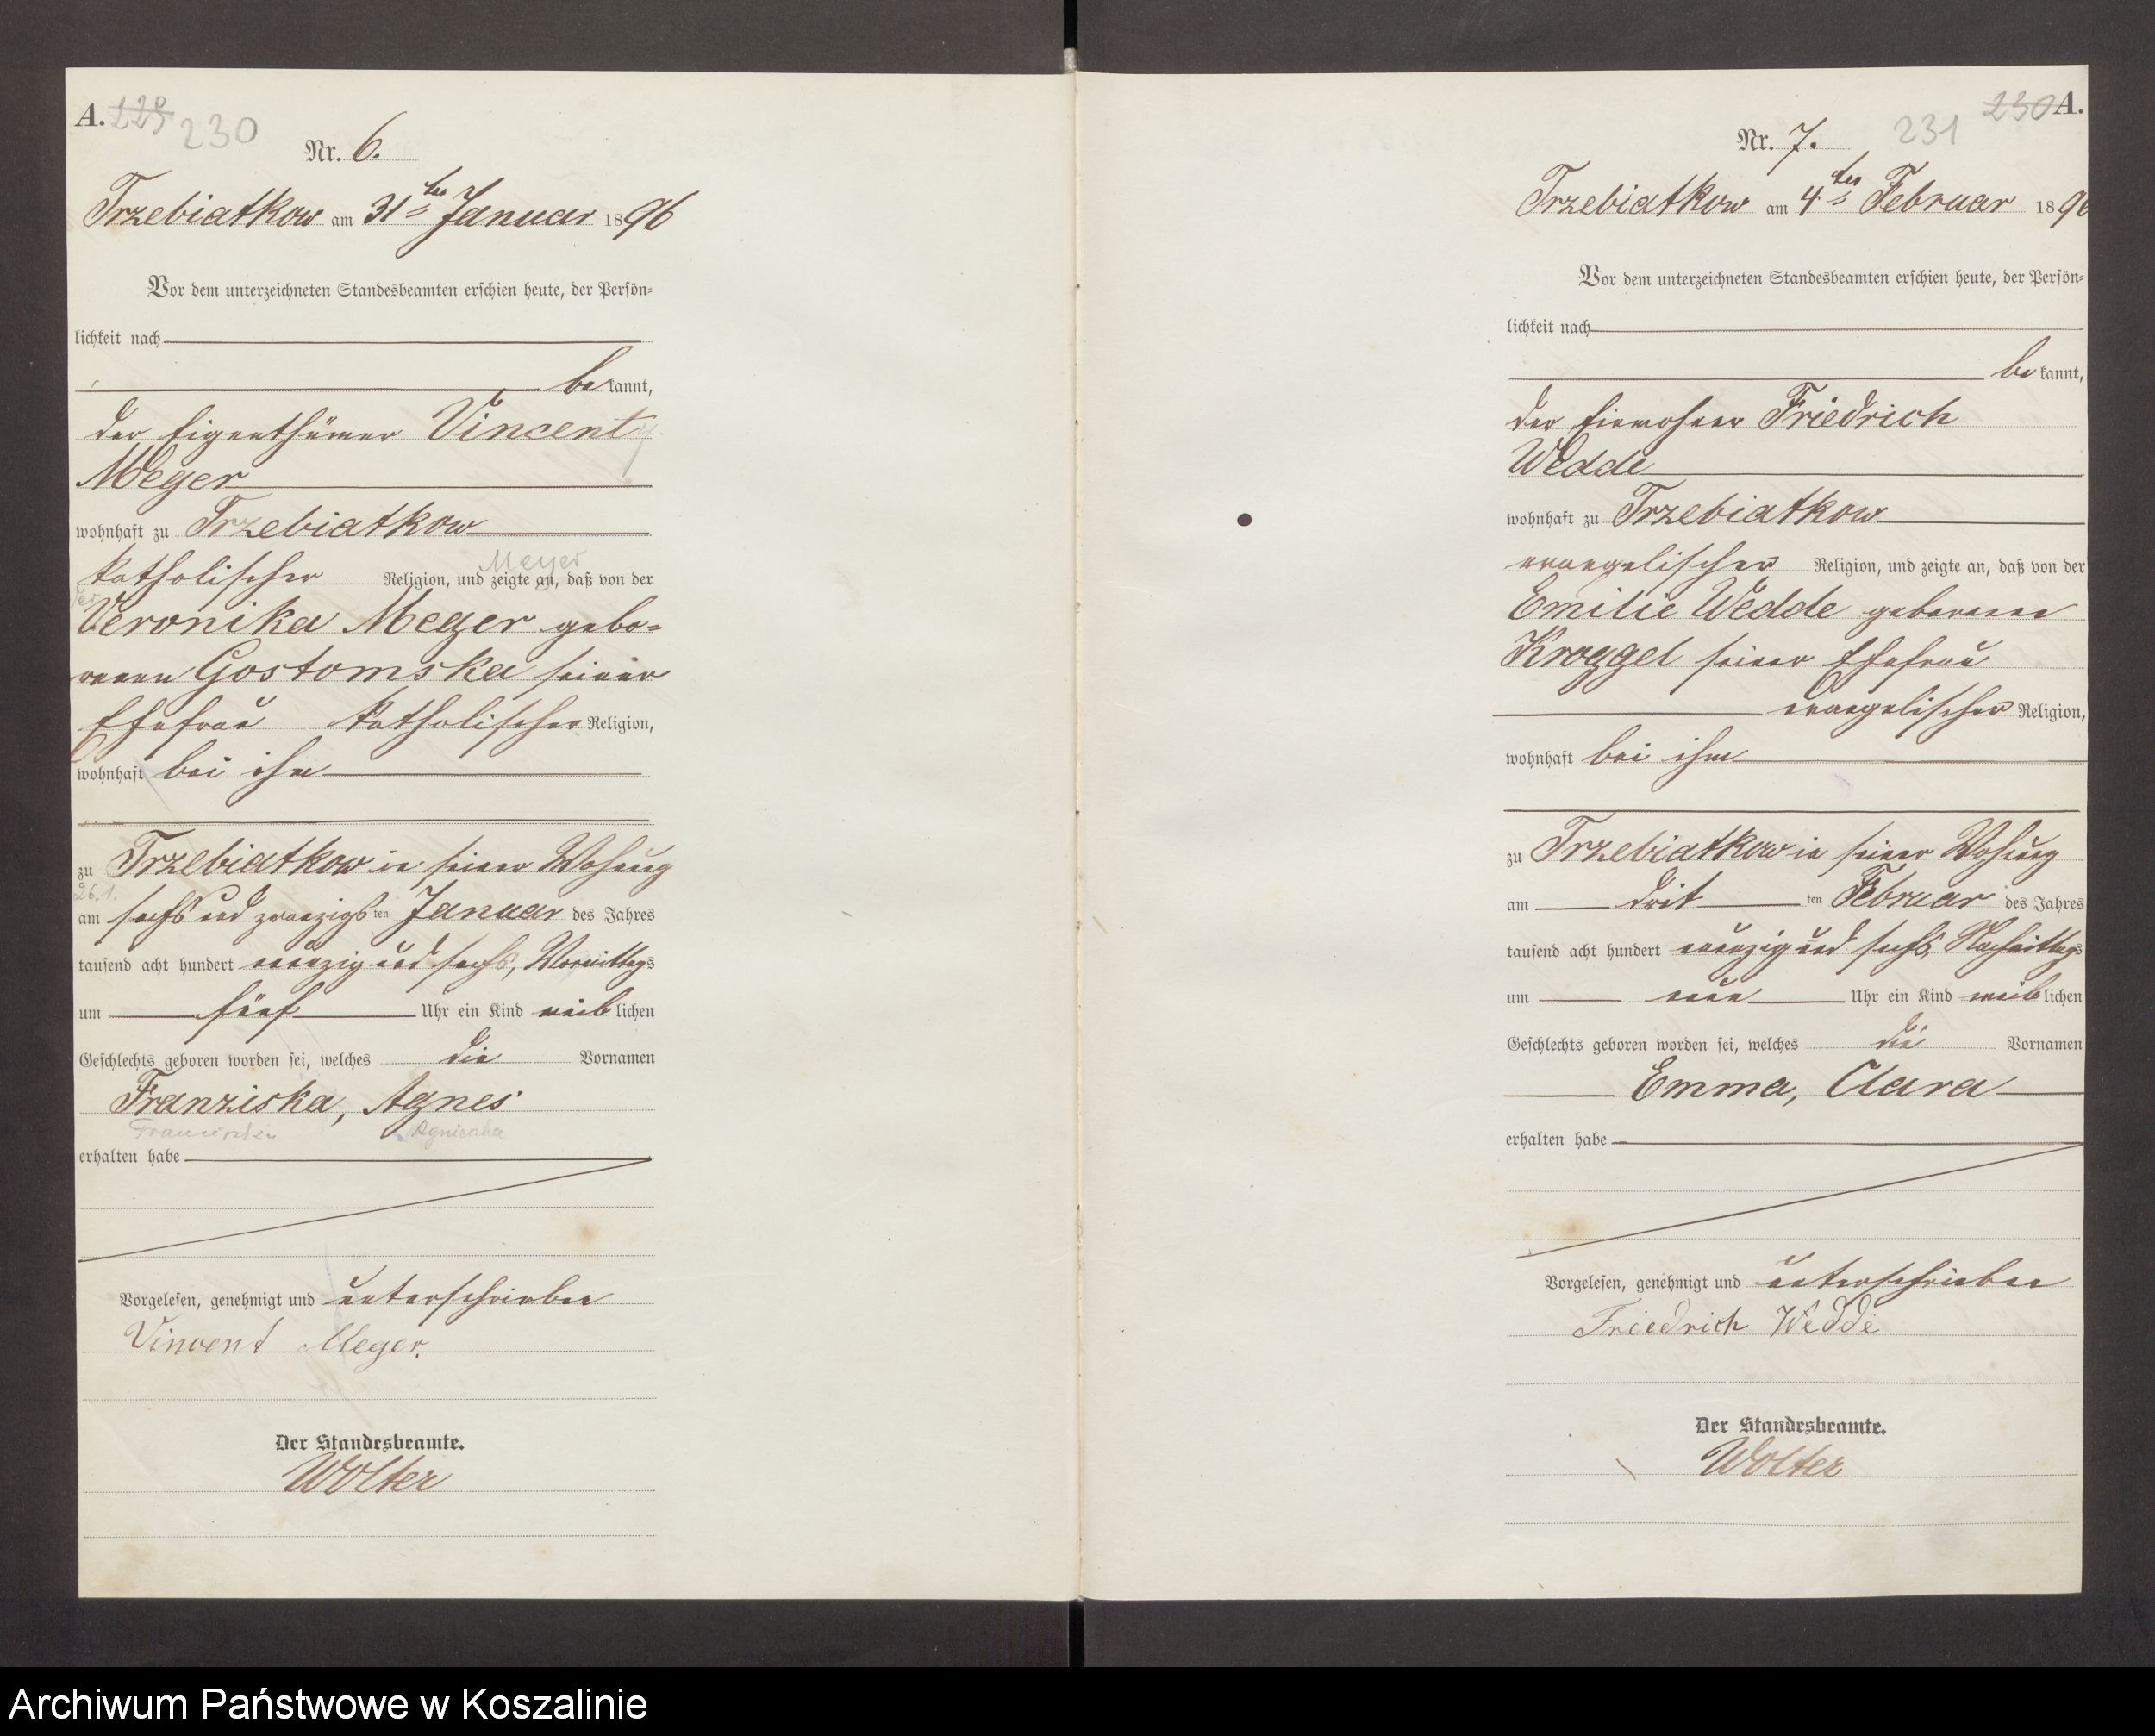 A. 229 230
Nr. 6.
Trzebiatkow am 31ten Januar 1896
Vor dem unterzeichneten Standesbeamten erschien heute, der Persön-
lichkeit nach
bekannt,
der Eigenthümer Vincent y.
Meger
wohnhaft zu Trzebiatkow
Meyer
katholischer Religion, und zeigte an, daß von der
Veronika Meger gebo-
renen Gostomska seiner
Ehefrau katholischer Religion,
wohnhaft bei ihm
zu Trzebiatkow in seiner Wohnung
26.1.
am sechs und zwanzigsten Januar des Jahres
tausend acht hundert neunzig und sechs, Vormittags
um fünf Uhr ein Kind weiblichen
Geschlechts geboren worden sei, welches die Vornamen
Franziska, Agnes
Franciszka Agnieszka
erhalten habe
Vorgelesen, genehmigt und unterschrieben
Vincent Meger.
Der Standesbeamte.
Wolter
230 A.
Nr. 7. 231
Trzebiatkow am 4ten Februar 1896
Vor dem unterzeichneten Standesbeamten erschien heute, der Persön-
lichkeit nach
bekannt,
der Einwohner Friedrich
Wedde
wohnhaft zu Trzebiatkow
evangelischer Religion, und zeigte an, daß von der
Emilie Wedde geborenen
Kroggel seiner Ehefrau
evangelischer Religion,
wohnhaft bei ihm
zu Trzebiatkow in seiner Wohnung
am dritten Februar des Jahres
tausend acht hundert neunzig und sechs, Nachmittags
um neun Uhr ein Kind weiblichen
Geschlechts geboren worden sei, welches die Vornamen
Emma, Clara
erhalten habe
Vorgelesen, genehmigt und unterschrieben
Friedrich Wedde
Der Standesbeamte.
Wolter
Archiwum Państwowe w Koszalinie